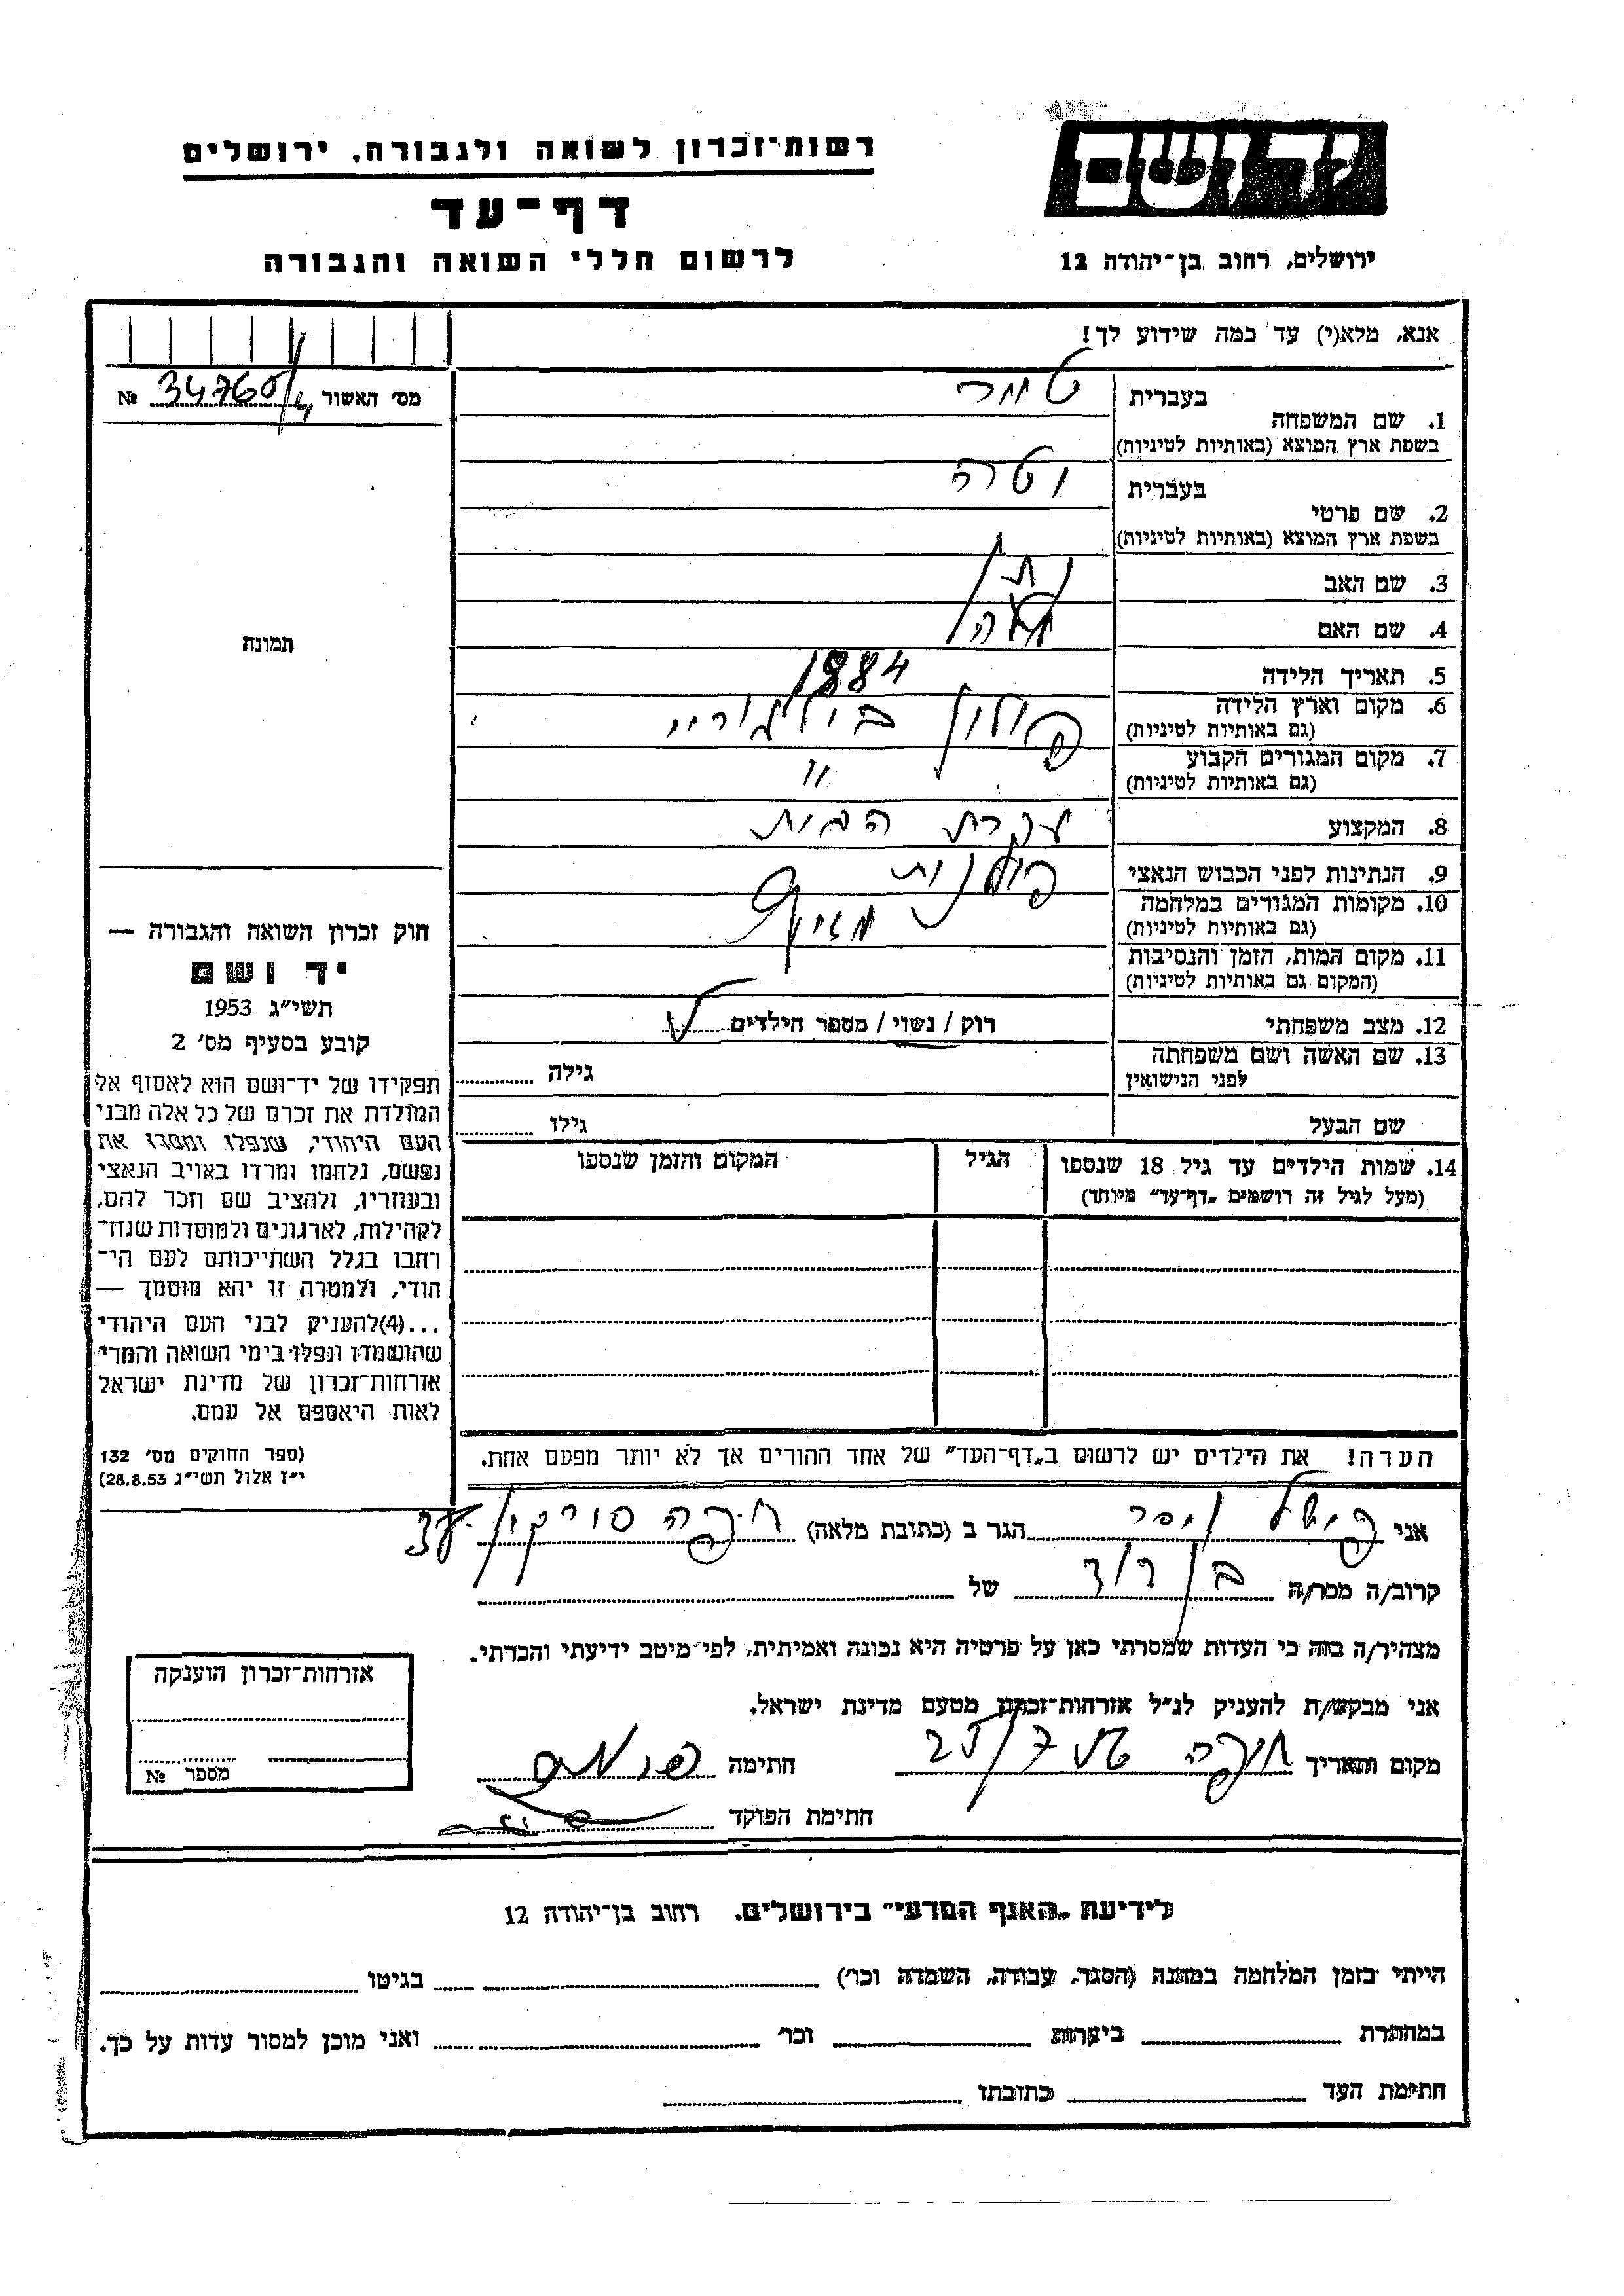 רשות־זכרון לשואה ולגבורה, ירושלים
יד ושם
דף־עד
לרשום חללי השואה והגבורה
ירושלים, רחוב בן־יהודה 12
אנא, מלא(י) עד כמה שידוע לך!
מס׳ האשור № 34760/4
1. שם המשפחה
בעברית
בשפת ארץ המוצא (באותיות לטיניות)
2. שם פרטי
בעברית וטה
בשפת ארץ המוצא (באותיות לטיניות)
3. שם האב נתן
4. שם האם
5. תאריך הלידה 1884
6. מקום וארץ הלידה פולין בילגוריי
(גם באותיות לטיניות)
7. מקום המגורים הקבוע "
(גם באותיות לטיניות)
8. המקצוע עקרת הבית
9. הנתינות לפני הכבוש הנאצי פולנית
10. מקומות המגורים במלחמה
(גם באותיות לטיניות)
11. מקום המות, הזמן והנסיבות
(המקום גם באותיות לטיניות)
12. מצב משפחתי רוק / נשוי / מספר הילדים
13. שם האשה ושם משפחתה
לפני הנישואין
גילה
שם הבעל גילו
14. שמות הילדים עד גיל 18 שנספו
(מעל לגיל זה רושמים „דף־עד״ מיוחד)
הגיל
המקום והזמן שנספו
תמונה
חוק זכרון השואה והגבורה —
יד ושם
תשי״ג 1953
קובע בסעיף מס׳ 2
תפקידו של יד־ושם הוא לאסוף אל
המולדת את זכרם של כל אלה מבני
העם היהודי, שנפלו ומסרו את
נפשם, נלחמו ומרדו באויב הנאצי
ובעוזריו, ולהציב שם וזכר להם,
לקהילות, לארגונים ולמוסדות שנח־
רחבו בגלל השתייכותם לעם הי־
הודי, ולמטרה זו יהא מוסמך —
...(4)להעניק לבני העם היהודי
שהושמדו ונפלו בימי השואה והמרי
אזרחות־זכרון של מדינת ישראל
לאות היאספם אל עמם.
(ספר החוקים מס׳ 132
י״ז אלול תשי״ג 28.8.53)
הערה! את הילדים יש לרשום ב„דף־העד״ של אחד ההורים אך לא יותר מפעם אחת.
אני הגר ב (כתובת מלאה) חיפה
קרוב/ה מכר/ה בן דוד של
מצהיר/ה בזה כי העדות שמסרתי כאן על פרטיה היא נכונה ואמיתית, לפי מיטב ידיעתי והכרתי.
אני מבקש/ת להעניק לנ״ל אזרחות־זכרון מטעם מדינת ישראל.
מקום ותאריך חיפה חתימה
חתימת הפוקד
אזרחות־זכרון הוענקה
מספר №
לידיעת „האגף המדעי״ בירושלים, רחוב בן־יהודה 12
הייתי בזמן המלחמה במחנה (הסגר, עבודה, השמדה וכו׳) בגיטו
במחתרת ביערות וכו׳ ואני מוכן למסור עדות על כך.
חתימת העד כתובתו